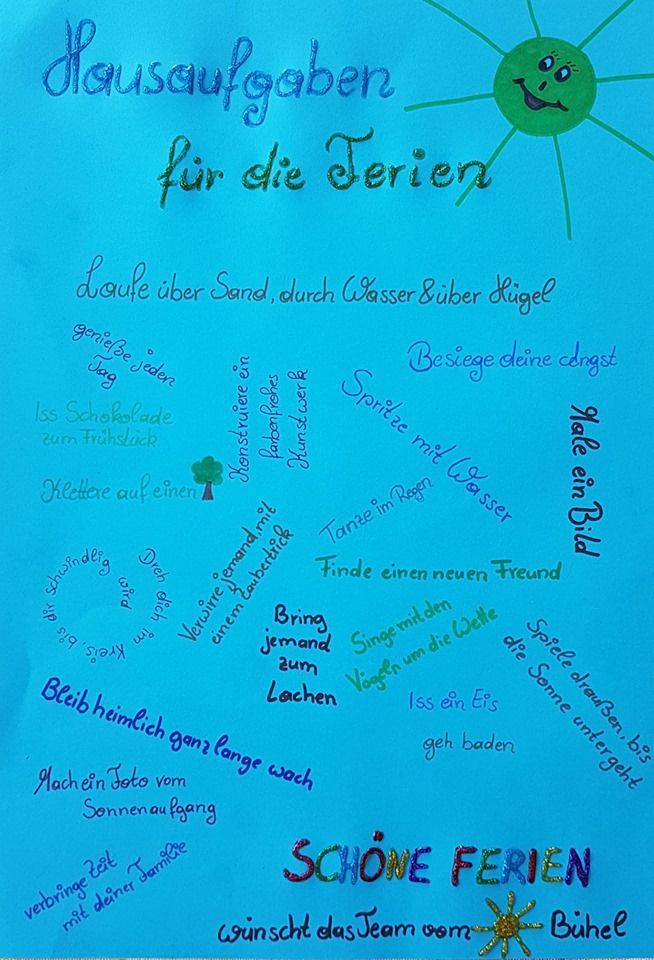 Hausaufgaben
für die Ferien
Laufe über Sand, durch Wasser & über Hügel
genieße jeden
Tag
Besiege deine Angst
Iss Schokolade
zum Frühstück
Konstruiere ein
farbenfrohes
Kunstwerk
Spritze mit Wasser
Male ein Bild
Klettere auf einen
Tanze im Regen
Verwirre jemand mit
einem Zaubertrick
Finde einen neuen Freund
Dreh dich im Kreis, bis dir schwindlig wird
Bring
jemand
zum
Lachen
Singe mit den
Vögeln um die Wette
Spiele draußen, bis
die Sonne untergeht
Bleib heimlich ganz lange wach
Iss ein Eis
geh baden
Mach ein Foto vom
Sonnenaufgang
verbringe Zeit
mit deiner Familie
SCHÖNE FERIEN
wünscht das Team vom Bühel